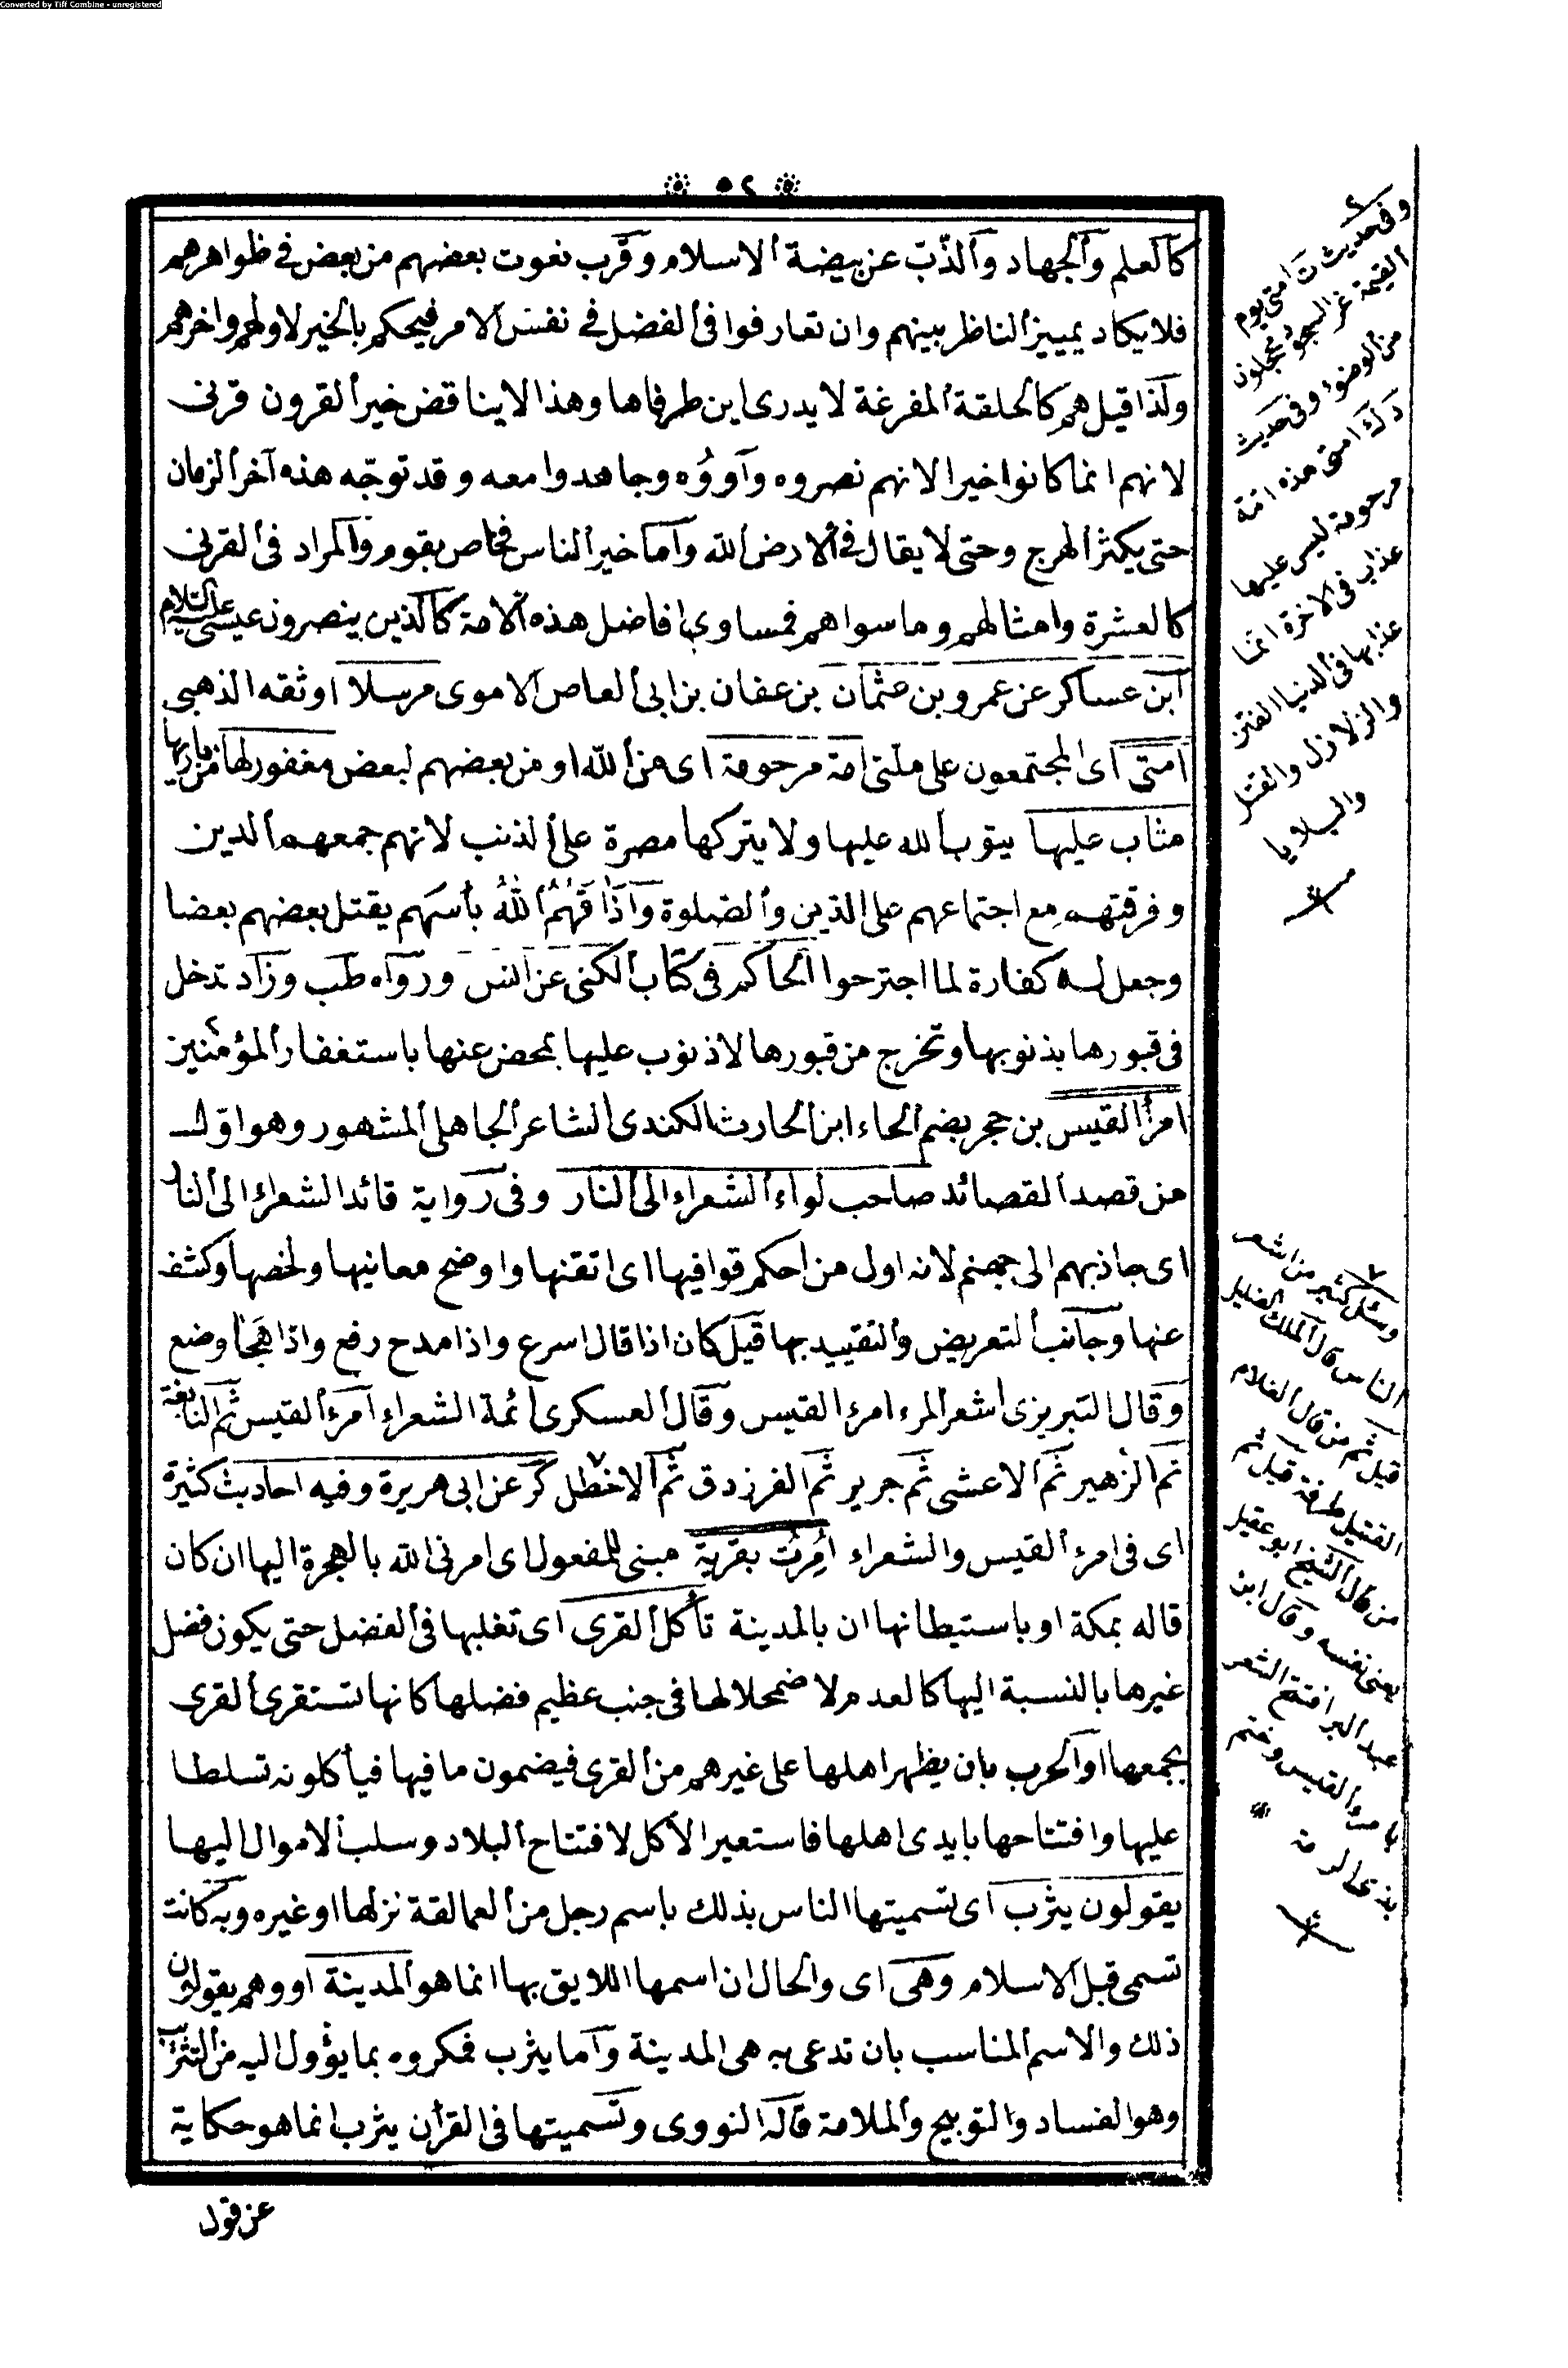 Converted by Tiff Combine - unregistered
٥٢
كالعلم والجهاد والذب عن بيضة الاسلام وقرب نعوت بعضهم من بعض فى ظواهرهم
فلا يكاد يمييز الناظر بينهم وان تعارفوا فى الفضل فى نفس الامر فيحكم بالخير لاولهم واخرهم
ولذا قيل هم كالحلقة المفرغة لا يدرى اين طرفاها وهذا لايناقض خير القرون قرنى
لانهم انما كانوا خيرا لانهم نصروه وآووه وجاهدوا معه وقد توجه هذه آخر الزمان
حتى يكثر الهرج وحتى لا يقال فى الارض الله واما خير الناس فخاص بقوم والمراد فى القرنى
كالعشرة وامثالهم وما سواهم فمساويها فاضل هذه الامة كالذين ينصرون عيسى عليه السلام
ابن عساكر عن عمرو بن عثمان بن عفان بن ابى العاص الاموى مرسلا اوثقه الذهبى
امتى اى المجتمعون على ملتى امة مرحومة اى من الله او من بعضهم لبعض مغفور لها من باريها
مثاب عليها يتوب الله عليها ولا يتركها مصرة على الذنب لانهم جمعهم الدين
وفرقتهم مع اجتماعهم على الدين والصلوة واذاقهم الله بأسهم يقتل بعضهم بعضا
وجعل له كفارة لما اجترحوا الحاكم فى كتاب الكنى عن انس ورواه طب وزاد تدخل
فى قبورها بذنوبها وتخرج من قبورها لاذنوب عليها تمحض عنها باستغفار المؤمنين
امرأ القيس بن حجر بضم الحاء ابن الحارث الكندى الشاعر الجاهلى المشهور وهو اول
من قصد القصائد صاحب لواء الشعراء الى النار وفى رواية قائد الشعراء الى النار
اى جاذبهم الى جهنم لانه اول من احكم قوافيها اى اتقنها واوضح معانيها ولخصها وكشف
عنها وجانب التعريض والتقييد بها قيل كان اذا قال اسرع واذا مدح رفع واذا هجأ وضع
وقال التبريزى اشعر المرء امرء القيس وقال العسكرى ائمة الشعراء امرء القيس ثم النابغة
ثم الزهير ثم الاعشى ثم جرير ثم الفرزدق ثم الاخطل كر عن ابى هريرة وفيه احاديث كثيرة
اى فى امرء القيس والشعراء امرت بقرية مبنى للمفعول اى امرنى الله بالهجرة اليها ان كان
قاله بمكة او باستيطانها ان بالمدينة تأكل القرى اى تغلبها فى الفضل حتى يكون فضل
غيرها بالنسبة اليها كالعدم لاضمحلالها فى جنب عظيم فضلها كانها تستقرى القرى
بجمعها او الحرب بان يظهر اهلها على غيرهم من القرى فيضمون ما فيها فيأكلونه تسلطا
عليها وافتتاحها بايدى اهلها فاستعير الاكل لافتتاح البلاد وسلب الاموال اليها
يقولون يثرب اى تسميتها الناس بذلك باسم رجل من العمالقة نزلها او غيره وبه كانت
تسمى قبل الاسلام وهى اى والحال ان اسمها اللايق بها انما هو المدينة او وهم يقولون
ذلك والاسم المناسب بان تدعى به هى المدينة واما يثرب فمكروه بما يؤول اليه من التثريب
وهو الفساد والتوبيخ والملامة قاله النووى وتسميتها فى القرأن يثرب انما هو حكاية
عن قول
٢
وفى حديث ت امتى يوم
القيمة غر السجود محجلون
من الوضوء وفى حديث
د ك امتى هذه امة
مرحومة ليس عليها
عذاب فى الاخرة انما
عذابها فى الدنيا الفتن
والزلازل والقتل
والبلايا
٧
وسئل كثير من اشعر
الناس قال الملك الضليل
قيل ثم من قال الغلام
القتيل طرفة قيل ثم
من قال الشيخ ابو عقيل
يعنى نفسه وقال ابن
عبد البر افتتح الشعر
بامرء القيس وختم
بذى الرمة